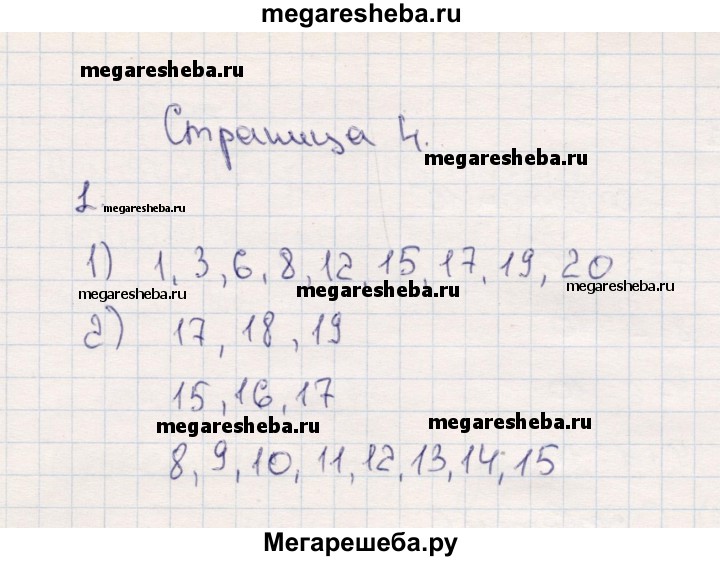 megaresheba.ru
megaresheba.ru
Страница 4.
megaresheba.ru
1
megaresheba.ru
1) 1, 3, 6, 8, 12, 15, 17, 19, 20
megaresheba.ru
megaresheba.ru
megaresheba.ru
2) 17, 18, 19
15, 16, 17
megaresheba.ru
megaresheba.ru
8, 9, 10, 11, 12, 13, 14, 15
Мегарешеба.ру